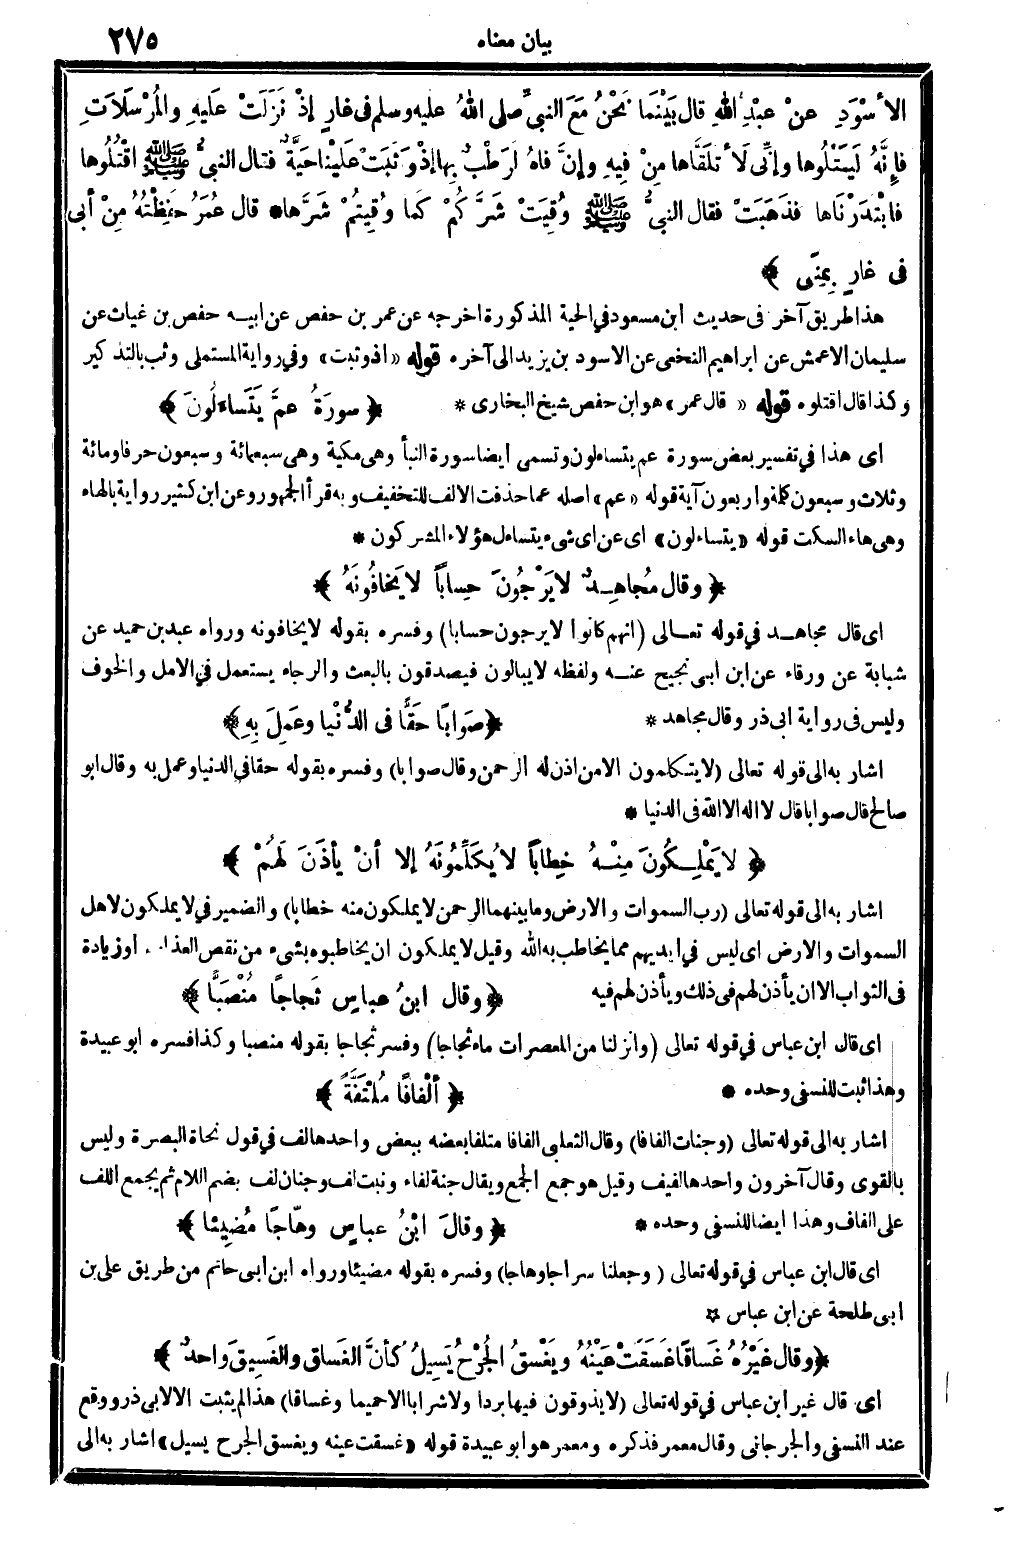 بيان معناه
٢٧٥
الأسْوَدِ عنْ عبْدِ اللهِ قال بَيْنَما نَحْنُ مَعَ النبيِّ صلى اللهُ عليه وسلم في غارٍ إذْ نَزَلَتْ عَلَيهِ والمُرْسَلَاتِ
فإنَّهُ لَيَتْلُوها وإنِّى لَأتلَقَّاها مِنْ فِيهِ وإنَّ فاهُ لَرَطْبٌ بِها إذْ وَثَبَتْ عَلَيْنا حَيَّةٌ فقال النبيُّ ﷺ اقْتُلُوها
فابْتَدَرْنَاها فذَهَبَتْ فقال النبيُّ ﷺ وُقِيَتْ شَرَّكُمْ كما وُقِيتُمْ شَرَّها * قال عُمَرُ حَفِظْتُهُ مِنْ أبى
فى غارٍ بِمِنًى ﴾
هذا طريق آخر فى حديث ابن مسعود في الحية المذكورة اخرجه عن عمر بن حفص عن ابيه حفص بن غياث عن
سليمان الاعمش عن ابراهيم النخعى عن الاسود بن يزيد الى آخره قوله «اذ وثبت» وفي رواية المستملى وثب بالتذكير
وكذا قال اقتلوه قوله «قال عمر» هو ابن حفص شيخ البخارى *
﴿ سورَةُ عمَّ يَتَساءَلُونَ ﴾
اى هذا في تفسير بعض سورة عم يتساءلون وتسمى ايضا سورة النبأ وهى مكية وهى سبعمائة وسبعون حرفا ومائة
وثلاث وسبعون كلمة واربعون آية قوله «عم» اصله عما حذفت الالف للتخفيف وبه قرأ الجمهور وعن ابن كثير رواية بالهاء
وهى هاء السكت قوله «يتساءلون» اى عن اى شىء يتساءل هؤلاء المشركون *
﴿ وقال مُجاهِدٌ لا يَرْجُونَ حِساباً لا يَخافُونَهُ ﴾
اى قال مجاهد في قوله تعالى (انهم كانوا لا يرجون حسابا) وفسره بقوله لا يخافونه ورواه عبد بن حميد عن
شبابة عن ورقاء عن ابن ابى نجيح عنه ولفظه لا يبالون فيصدقون بالبعث والرجاء يستعمل في الامل والخوف
وليس فى رواية ابى ذر وقال مجاهد *
﴿ صَوَابًا حَقًّا فى الدُّنْيا وعَمِلَ بِهِ ﴾
اشار به الى قوله تعالى (لا يتكلمون الا من اذن له الرحمن وقال صوابا) وفسره بقوله حقا في الدنيا وعمل به وقال ابو
صالح قال صوابا قال لا اله الا الله فى الدنيا *
﴿ لا يَمْلِكُونَ مِنْهُ خِطابًا لا يُكَلِّمُونَهُ إلا أنْ يأذَنَ لَهُمْ ﴾
اشار به الى قوله تعالى (رب السموات والارض وما بينهما الرحمن لا يملكون منه خطابا) والضمير في لا يملكون لاهل
السموات والارض اى ليس في ايديهم مما يخاطب به الله وقيل لا يملكون ان يخاطبوه بشىء من نقص العذاب أو زيادة
فى الثواب الا ان يأذن لهم فى ذلك ويأذن لهم فيه
﴿ وقال ابنُ عباسٍ ثَجاجًا مُنْصَبًّا ﴾
اى قال ابن عباس في قوله تعالى (وانزلنا من المعصرات ماء ثجاجا) وفسر ثجاجا بقوله منصبا وكذا فسره ابو عبيدة
وهذا ثبت للنسفى وحده *
﴿ ألْفافًا مُلْتَفَّةً ﴾
اشار به الى قوله تعالى (وجنات الفافا) وقال الثعلبى الفافا متلفا بعضه ببعض واحدها لف في قول نحاة البصرة وليس
بالقوى وقال آخرون واحدها لفيف وقيل هو جمع الجمع ويقال جنة لفاء ونبت لف وجنان لف بضم اللام ثم يجمع اللف
على الفاف وهذا ايضا للنسفى وحده *
﴿ وقالَ ابْنُ عباسٍ وهّاجًا مُضِيئا ﴾
اى قال ابن عباس في قوله تعالى (وجعلنا سراجا وهاجا) وفسره بقوله مضيئا ورواه ابن ابى حاتم من طريق على بن
ابى طلحة عن ابن عباس *
﴿ وقال غَيْرُهُ غَساقًا غَسَقَتْ عَيْنُهُ ويَغْسِقُ الجُرْحُ يَسِيلُ كأنَّ الغَساق والغَسِيقَ واحدٌ ﴾
اى قال غير ابن عباس في قوله تعالى (لا يذوقون فيها بردا ولا شرابا الا حميما وغساقا) هذا لم يثبت الا لابى ذر ووقع
عند النسفى والجرجانى وقال معمر فذكره ومعمر هو ابو عبيدة قوله «غسقت عينه ويغسق الجرح يسيل» اشار به الى